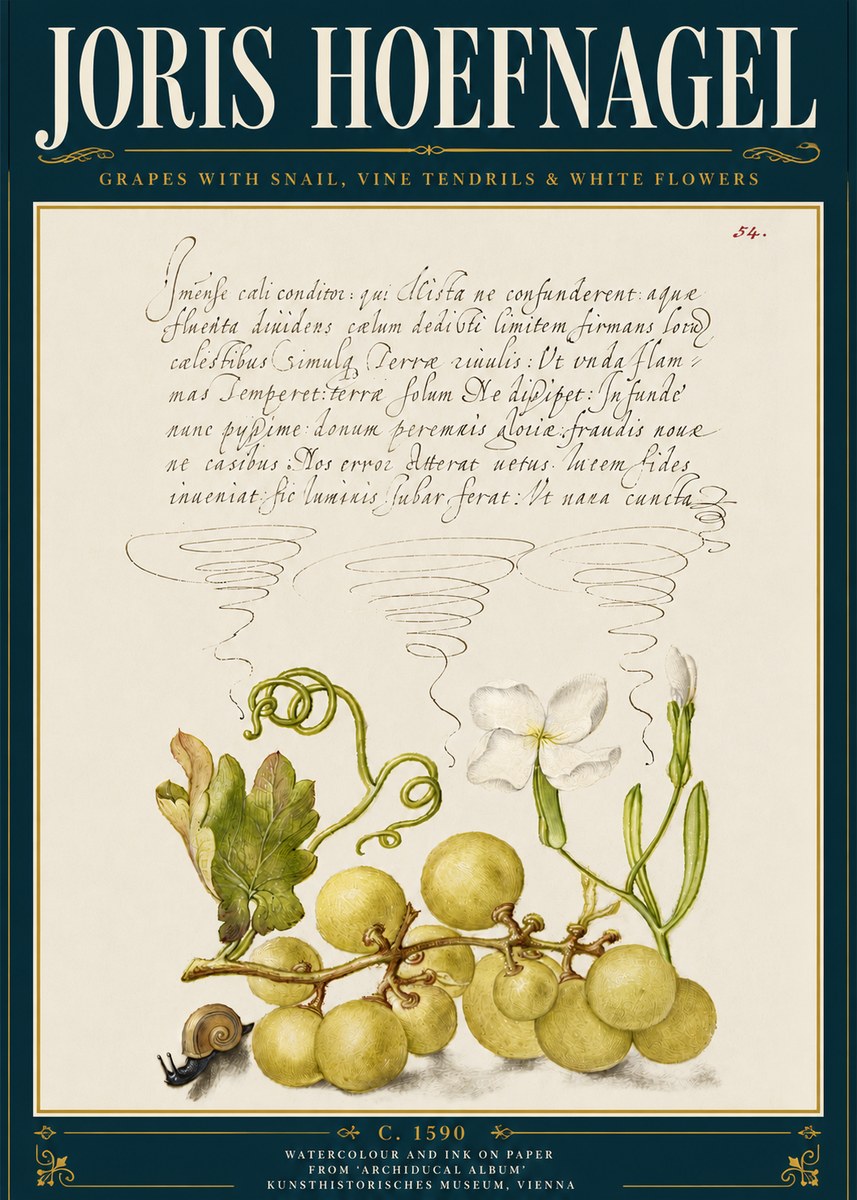 JORIS HOEFNAGEL
GRAPES WITH SNAIL, VINE TENDRILS & WHITE FLOWERS
54.
Imense cali conditor: qui Mista ne confunderent: aquæ
fluenta diuidens cælum dedisti limitem firmans locū
cælestibus Simulq Terræ riuulis: Ut vnda flam=
mas Temperet: terræ solum Ne dissipet: Infunde
nunc pyssime: donum peremnis gloriæ: fraudis nouæ
ne casibus: Nos error Atterat uetus. lucem fides
inueniat: sic luminis Iubar ferat: Ut uana cuncta
C. 1590
WATERCOLOUR AND INK ON PAPER
FROM 'ARCHIDUCAL ALBUM'
KUNSTHISTORISCHES MUSEUM, VIENNA